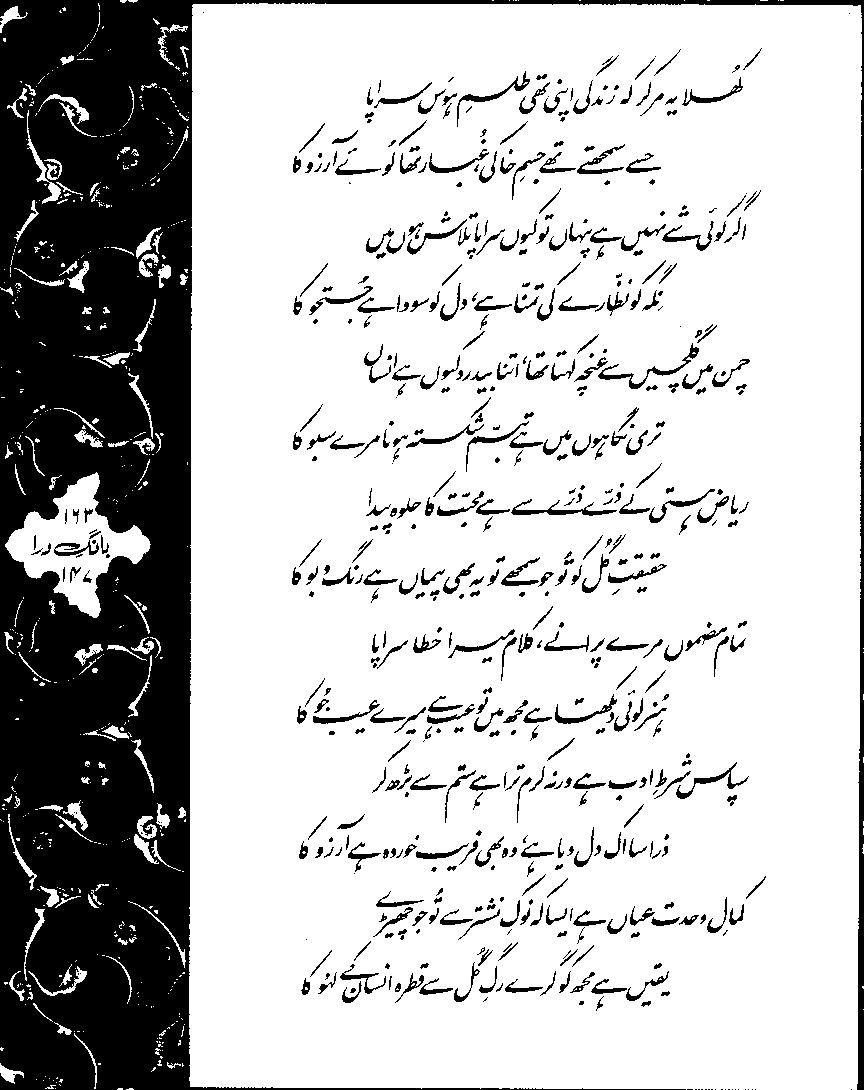 کھُلا یہ مر کر کہ زندگی اپنی تھی طلسمِ ہوَس سراپا
جسے سمجھتے تھے جسمِ خاکی، غُبار تھا کُوئے آرزو کا
اگر کوئی شے نہیں ہے پنہاں تو کیوں سراپا تلاش ہوں میں
نِگہ کو نظّارے کی تمنّا ہے، دل کو سودا ہے جُستجو کا
چمن میں گُلچیں سے غنچہ کہتا تھا، اتنا بیدرد کیوں ہے انساں
تری نگاہوں میں ہے تبسّم شکستہ ہونا مرے سبو کا
ریاضِ ہستی کے ذرّے ذرّے سے ہے محبّت کا جلوہ پیدا
حقیقتِ گُل کو تُو جو سمجھے تو یہ بھی پیماں ہے رنگ و بو کا
تمام مضموں مرے پرانے، کلام میرا خطا سراپا
ہُنر کوئی دیکھتا ہے مجھ میں تو عیب ہے میرے عیب جُو کا
سپاس شرطِ ادب ہے ورنہ کرم ترا ہے ستم سے بڑھ کر
ذرا سا اک دل دیا ہے، وہ بھی فریب خوردہ ہے آرزو کا
کمالِ وحدت عیاں ہے ایسا کہ نوکِ نشتر سے تُو جو چھیڑے
یقیں ہے مجھ کو گرے رگِ گُل سے قطرہ انسان کے لہُو کا
۱۶۳
بانگِ درا
۱۴۷